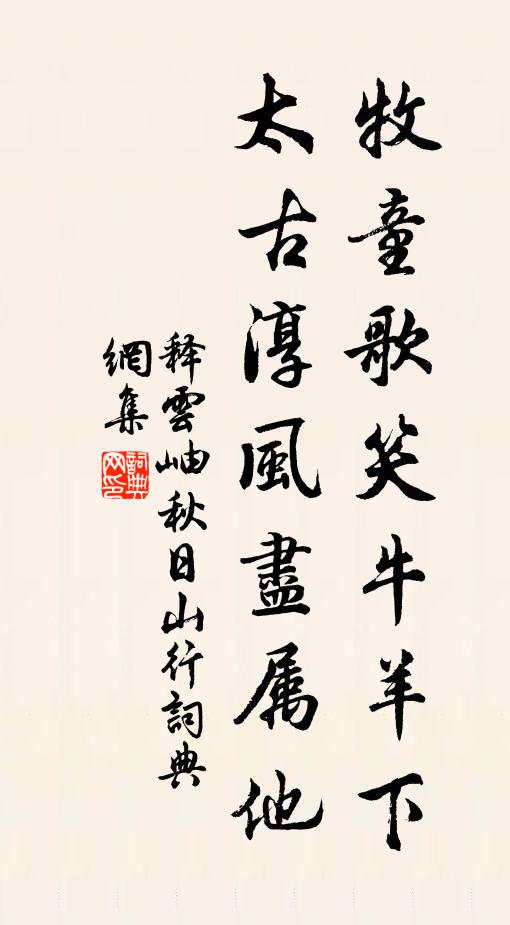 牧童歌笑牛羊下
太古淳風盡属他
释雲岫秋日山行詞典
網集
詞典網印